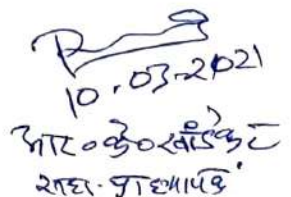 10.03.2021
आर०के०खांडेकर
सहा. प्राध्यापक